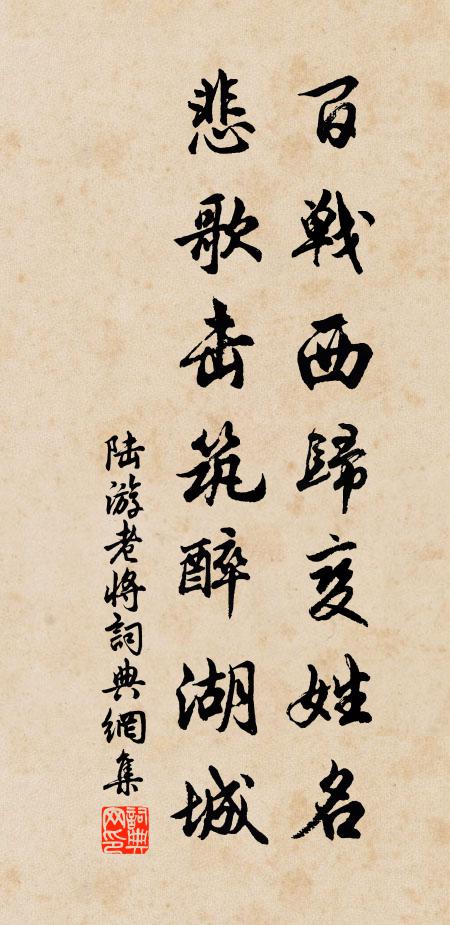 百戰西歸变姓名
悲歌击筑醉湖城
陆游老將詞典網集
詞典网印